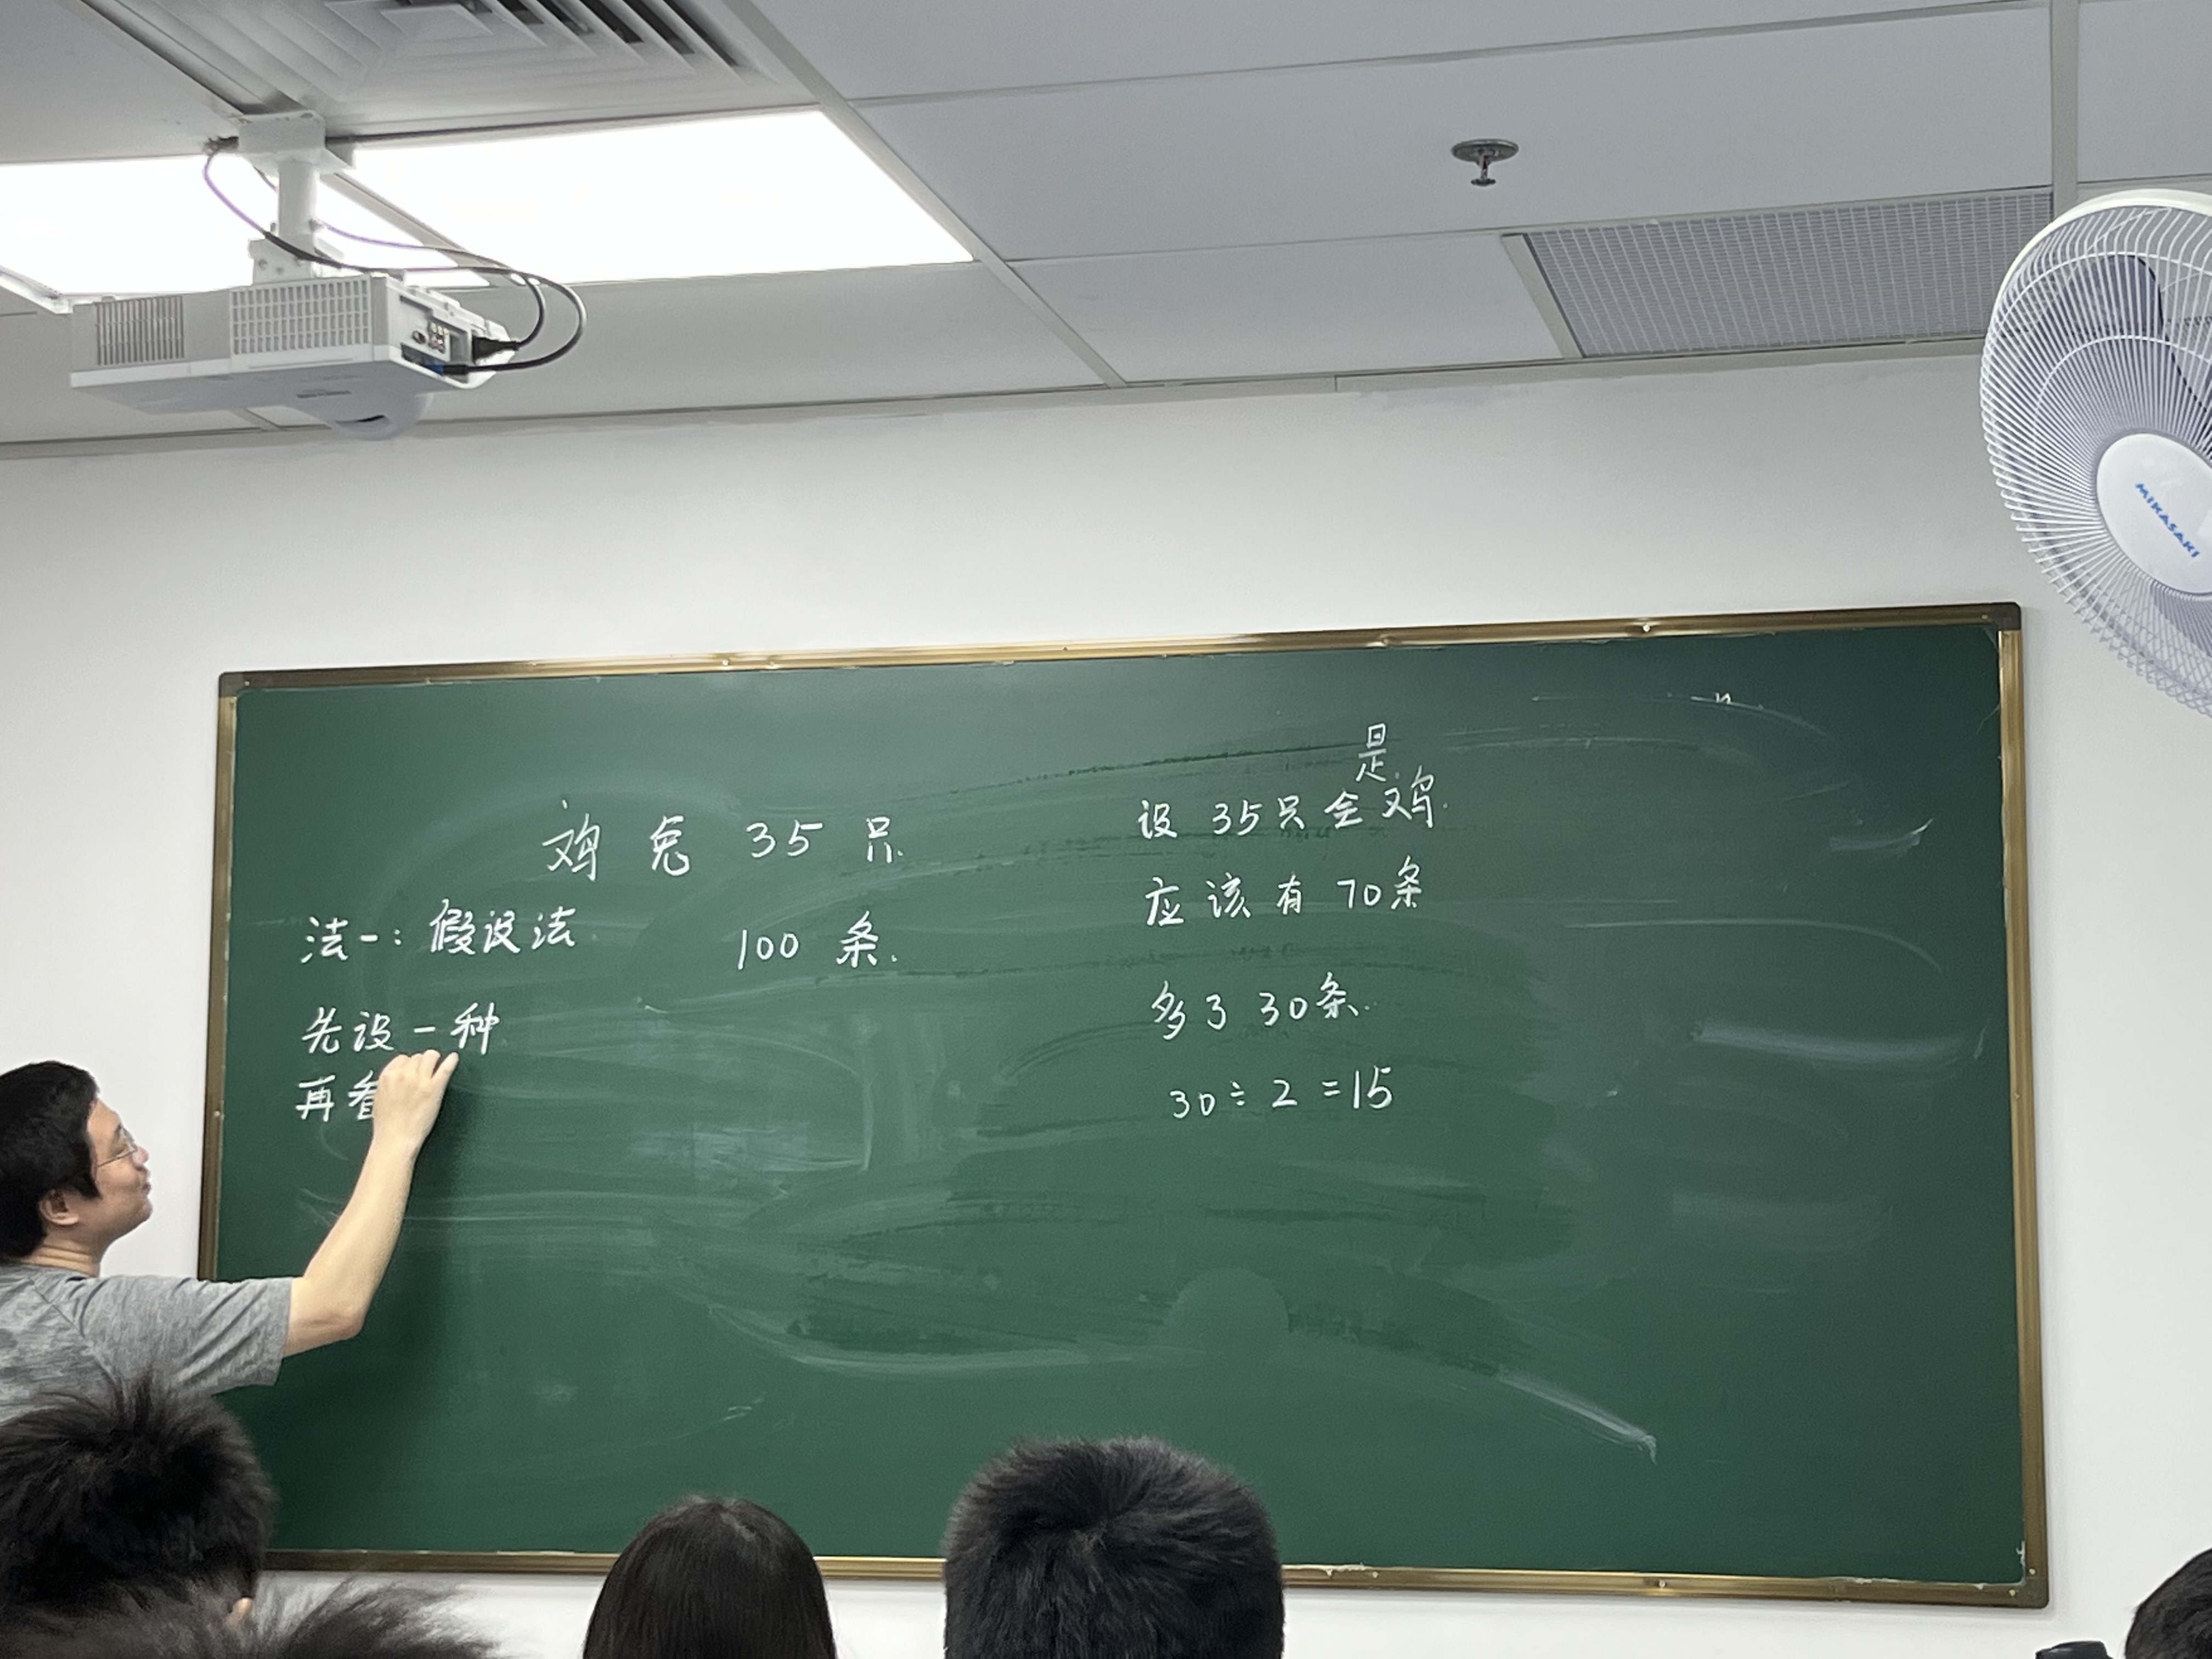 鸡兔 35 只.
100 条.
法一: 假设法
先设一种
再看
设 35只全是鸡.
应该有 70条
多了 30条.
30÷2=15
MIKASAKI